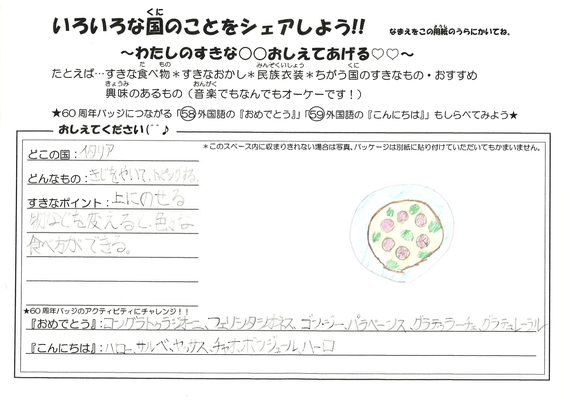 いろいろな国のことをシェアしよう!! なまえをこの用紙のうらにかいてね。
～わたしのすきな○○おしえてあげる♡♡～
たとえば…すきな食べ物＊すきなおかし＊民族衣装＊ちがう国のすきなもの・おすすめ
興味のあるもの（音楽でもなんでもオーケーです！）
★60周年バッジにつながる「58外国語の『おめでとう』」「59外国語の『こんにちは』」もしらべてみよう★
おしえてください(^^♪
＊このスペース内に収まりきれない場合は写真、パッケージは別紙に貼り付けていただいてもかまいません。
どこの国：イタリア
どんなもの：きじをやいて、トッピングする。
すきなポイント：上にのせる
物などを変えると、色々な
食べ方ができる。
★60周年バッジのアクティビティにチャレンジ！！
『おめでとう』：コングラトゥラジオーニ、フェリシタシオネス、ゴン・シー、パラベーンス、グラトゥラーチェ、グラテュレーラル
『こんにちは』：ハロー、サルベ、ヤッサス、チャオ、ボンジュール、ハーロ